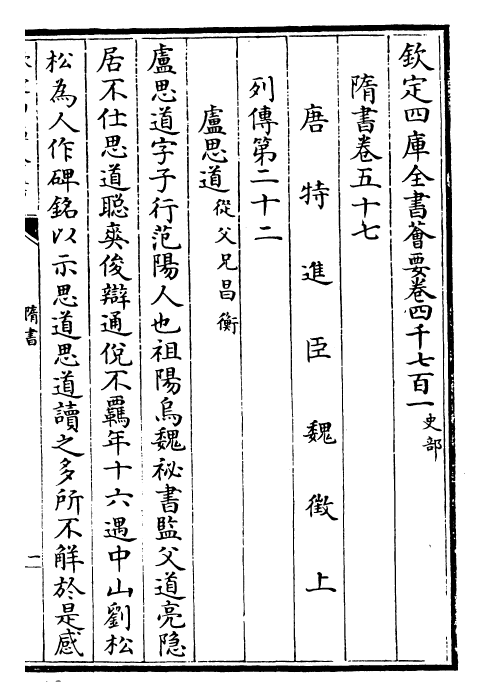 欽定四庫全書薈要卷四千七百一史部
隋書卷五十七
唐特進臣魏徵上
列傳第二十二
盧思道從父兄昌衡
盧思道字子行范陽人也祖陽烏魏祕書監父道亮隐
居不仕思道聰爽俊辯通侻不羈年十六遇中山劉松
松為人作碑銘以示思道思道讀之多所不解於是感
隋書